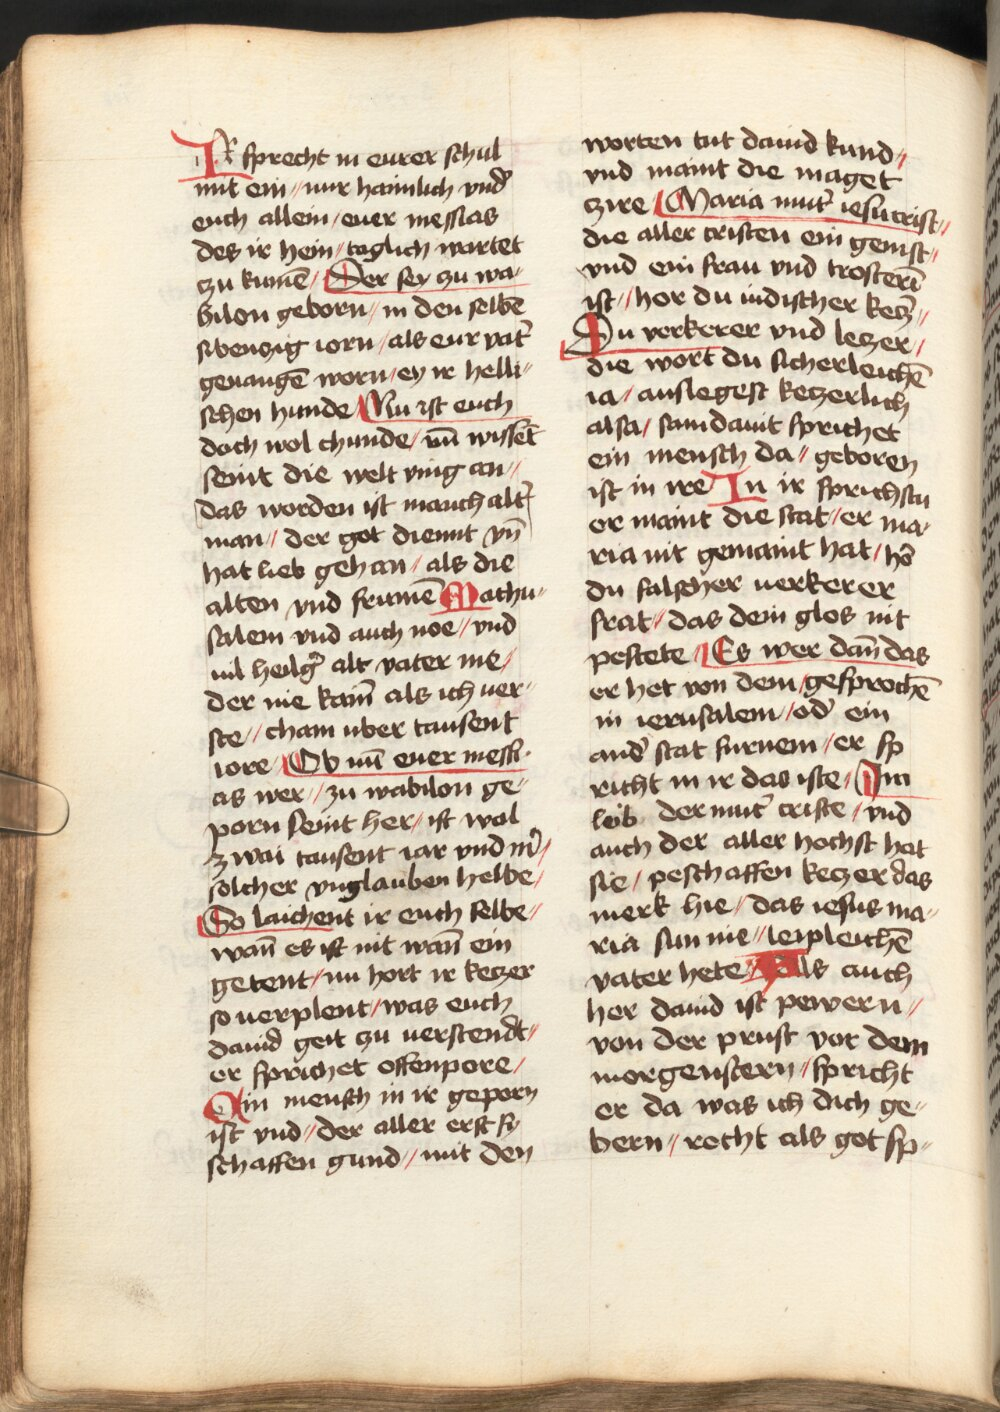 IR sprecht in eurer schul
mit ein // nur haimlich vnd̛
euch allein / euer messias
des ir hein / toglich wartet
zu kumē / Der sey zu wa-
bilon geborn / in den selbē
sibenzig iorn / als eur vat̛
geuangē worn / ey ir helli-
schen hunde / Nu ist euch
doch wol chunde / vnd wissēt
seint die welt ving an //
das worden ist manch alt̛
man / der got diennt vn̄
hat lieb gehan / als die
alten vnd frumē Mathu-
salem vnd auch noe // vnd
uil heilg̛ alt vater me /
der nie kain̄ als ich ver-
ste // cham uber tausent
iore / Ob nū euer messi-
as wer // zu wabilon ge-
porn seint her / ist wol
zwai tausent iar vnd m̛ /
solcher vnglauben helbe /
So laichent ir euch selbe //
wan̄ es ist nit wan̄ ein
getent / nu hort ir keczer
so uerplent / was euch
dauid geit zu uerstendt //
er sprichet offenpore /
Ain mensch in ir geporn
ist vnd // der aller erst sy
schaffen gund // mit den
worten tut dauid kund //
vnd maint die maget
zire / Maria mut̛ iesu crist //
die aller cristen ein genist //
vnd ein frau vnd trosterī
ist // hor du iudischer kecz̛ //
Du verkerer vnd leczer //
die wort du sicherleichē
ia / auslegest keczerlich
alsa / sam dauit sprichet
ein mensch da // geboren
ist in ire In ir sprichstu
er maint die stat / er ma-
ria nit gemaint hat / hō
du falscher uerkerer
frat // das dein glos nit
pestete / Es wer dan̄ das
er het von dem / gesprochē
in ierusalem / od̛ ein
and̛ stat furnem / er sp
richt in ir das iste / Im
leib der mut̛ criste / vnd
auch der aller hochst hat
sie / peschaffen keczer das
merk hie / das iesus ma-
ria sun nie // leipleichē
vater hete / Als auch
her dauid ist pewern //
von der prust vor dem
morgenstern / spricht
er da was ich dich ge-
bern // recht als got sp-